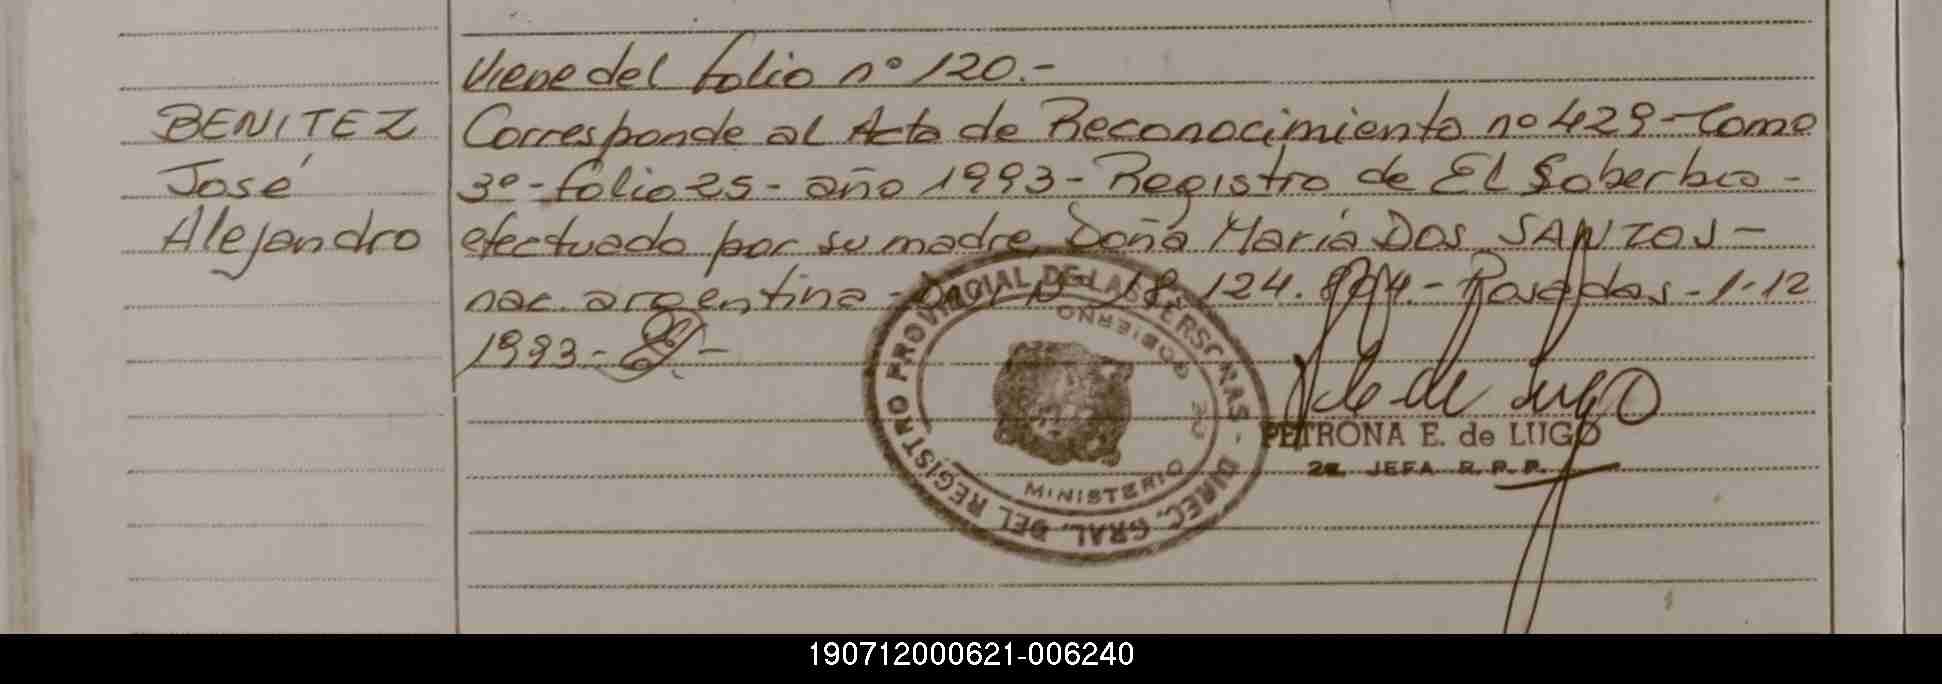 Viene del folio nº 120.-
BENITEZ
José
Alejandro
Corresponde al Acta de Reconocimiento nº 429 - Tomo
3º - folio 25 - año 1993 - Registro de El Soberbio -
efectuado por su madre, Doña María DOS SANTOS -
nac. argentina - 18.124. - Posadas - 1-12
1993 -
REGISTRO PROVINCIAL DE LAS PERSONAS - DIREC. GRAL. DEL
MINISTERIO DE GOBIERNO
PETRONA E. de LUGO
2a JEFA R. P. P.
190712000621-006240